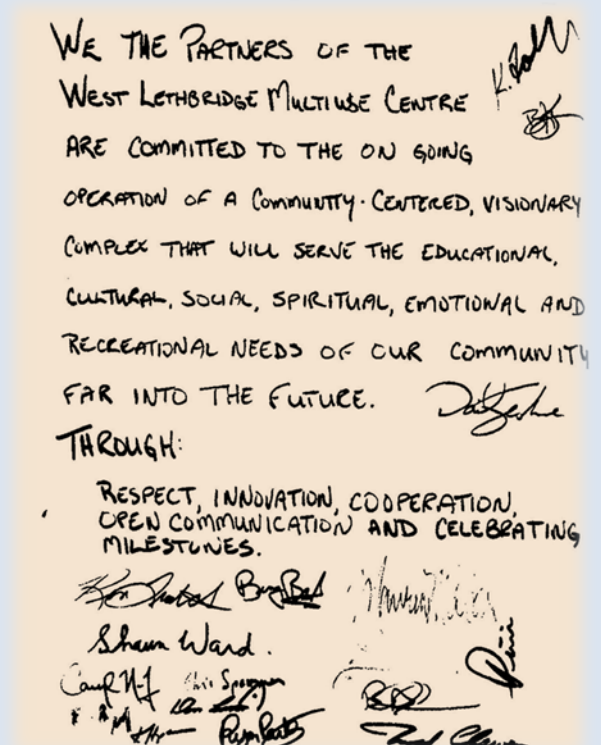 WE THE PARTNERS OF THE
WEST LETHBRIDGE MULTIUSE CENTRE
ARE COMMITTED TO THE ON GOING
OPERATION OF A COMMUNITY-CENTERED, VISIONARY
COMPLEX THAT WILL SERVE THE EDUCATIONAL,
CULTURAL, SOCIAL, SPIRITUAL, EMOTIONAL AND
RECREATIONAL NEEDS OF OUR COMMUNITY
FAR INTO THE FUTURE.
THROUGH:
RESPECT, INNOVATION, COOPERATION,
OPEN COMMUNICATION AND CELEBRATING
MILESTONES.
Shaun Ward.